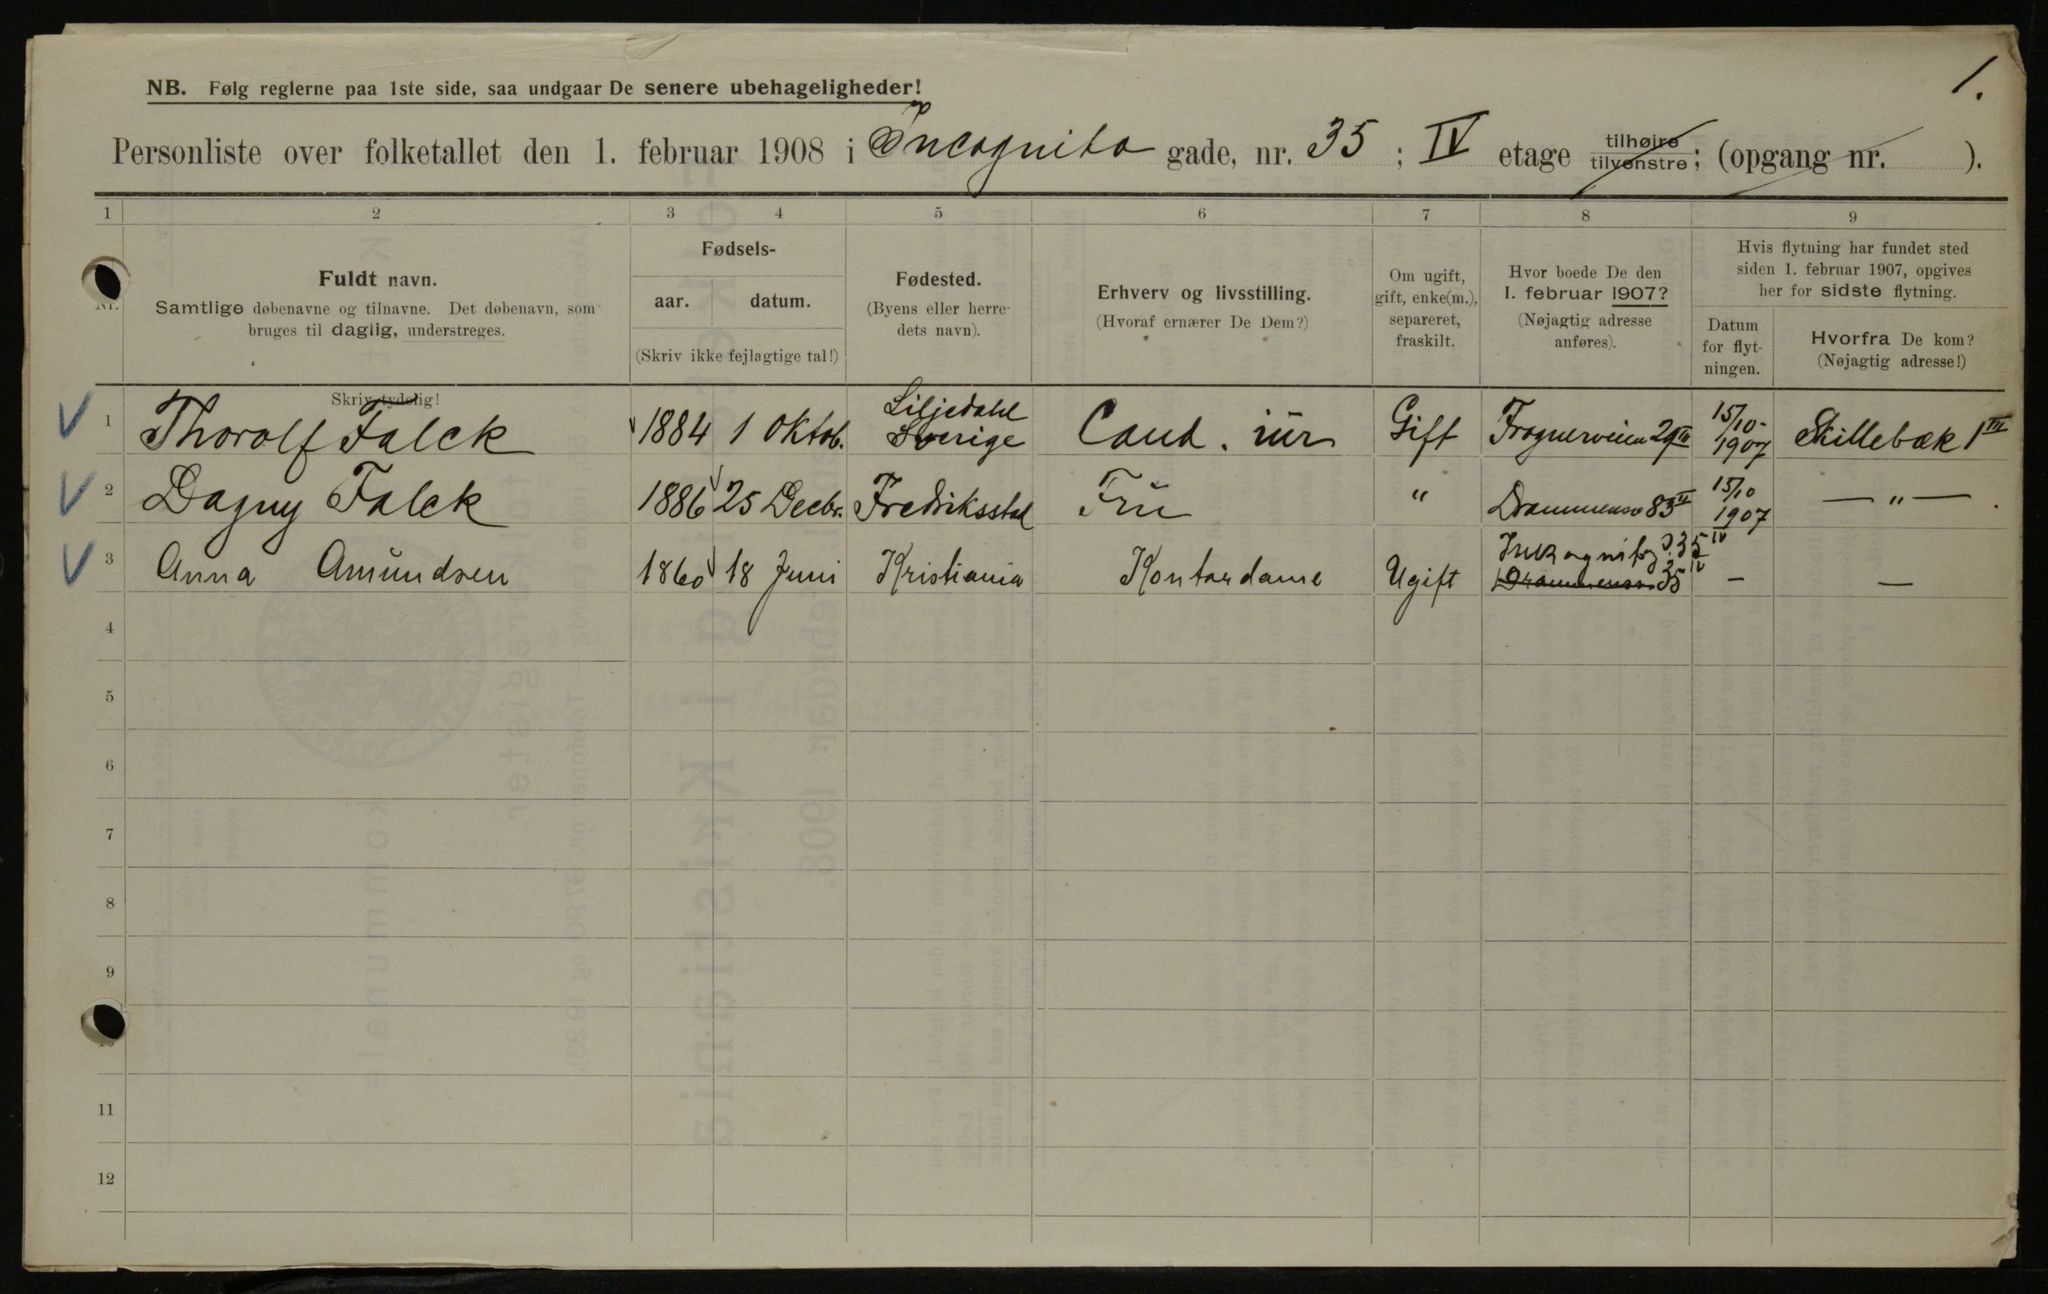 1.
NB. Følg reglerne paa 1ste side, saa undgaar De senere ubehageligheder!
Personliste over folketallet den 1. februar 1908 i Incognito gade, nr. 35 ; IV etage tilhøire tilvenstre; (opgang nr. ).
1 2 3 4 5 6 7 8 9
Nr.
Fuldt navn.
Samtlige døbenavne og tilnavne. Det døbenavn, som
bruges til daglig, understreges.
Skriv tydelig!
Fødsels-
aar. datum.
(Skriv ikke fejlagtige tal!)
Fødested.
(Byens eller herre-
dets navn).
Erhverv og livsstilling.
(Hvoraf ernærer De Dem?)
Om ugift,
gift, enke(m.),
separeret,
fraskilt.
Hvor boede De den
1. februar 1907?
(Nøjagtig adresse
anføres).
Hvis flytning har fundet sted
siden 1. februar 1907, opgives
her for sidste flytning.
Datum
for flyt-
ningen.
Hvorfra De kom?
(Nøjagtig adresse!)
1 Thorolf Falck 1884 1 Oktob. Liljedahl Sverige Cand. jur Gift Frognerveien 29 IV 15/10-1907 Skillebæk 1 III
2 Dagny Falck 1886 25 Decbr. Fredriksstad Frü " Drammensv 83 II 15/10 1907 — " — .
3 Anna Amündsen 1860 18 Juni Kristiania Kontordame Ugift Inkognitog 35 IV Drammensv 35 IV — —
4
5
6
7
8
9
10
11
12